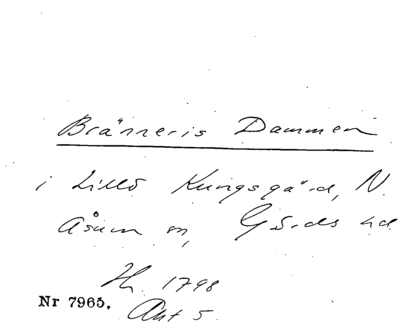 Bränneris Dammen
i Lillö Kungsgård, N.
Åsum sn, Gärds hd
Hr. 1798
Nr 7965.
Akt 5